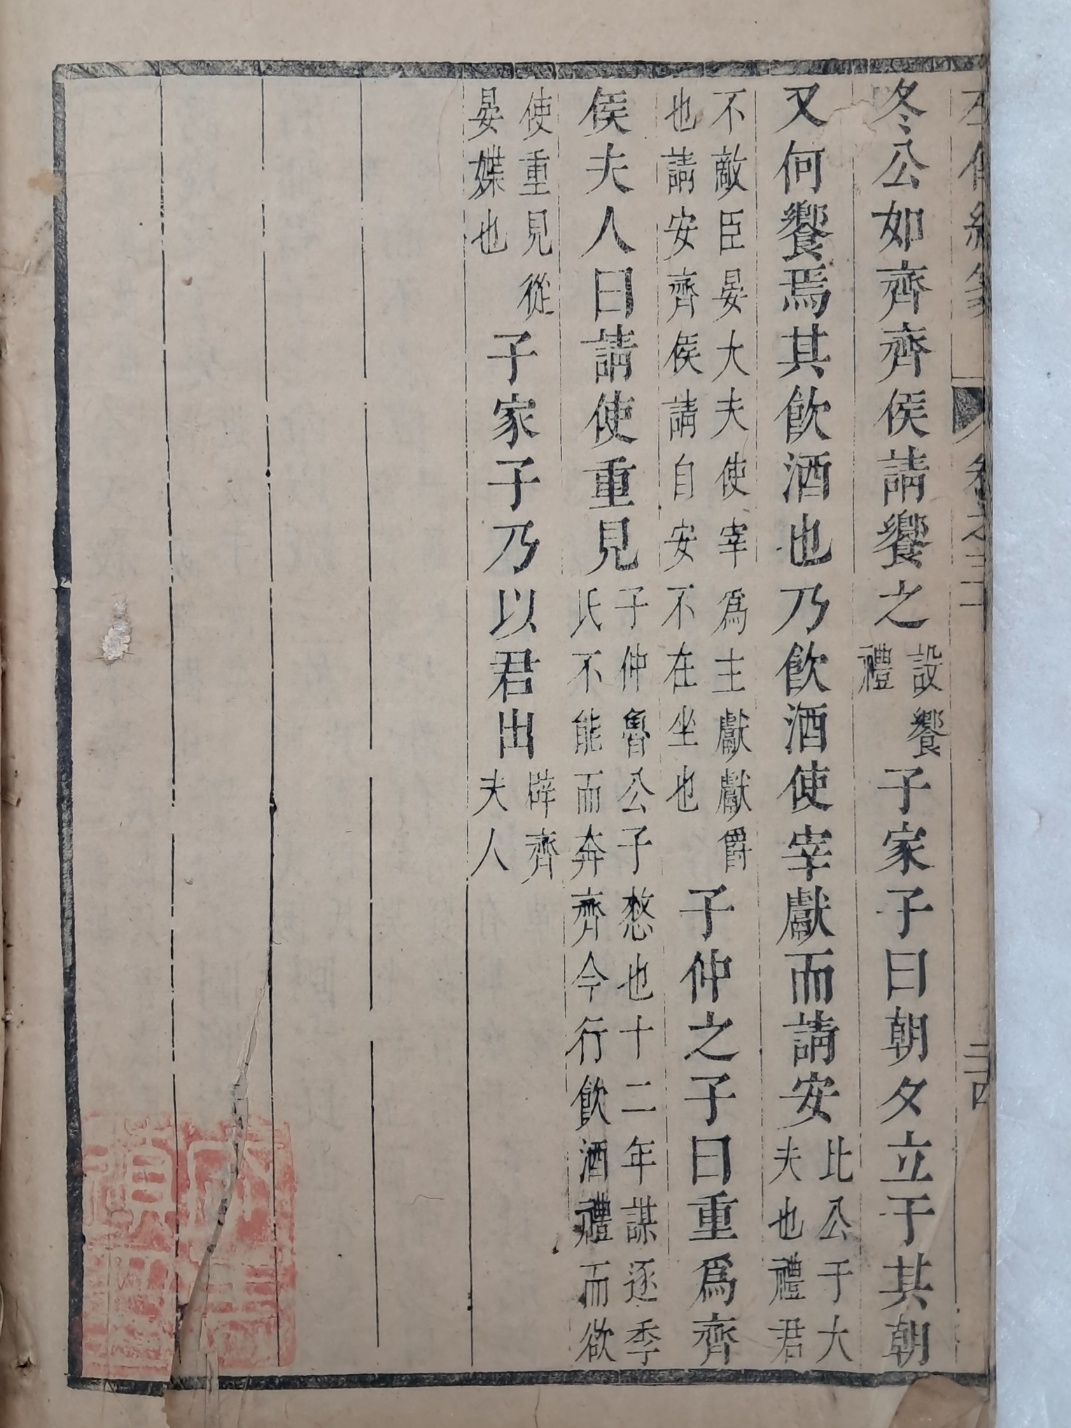 冬公如齊齊侯請饗之設饗禮子家子曰朝夕立于其朝
又何饗焉其飲酒也乃飲酒使宰獻而請安比公于大夫也禮君
不敵臣晏大夫使宰爲主獻獻爵也請安齊侯請自安不在坐也子仲之子曰重爲齊
侯夫人曰請使重見子仲魯公子憗也十二年謀逐季氏不能而奔齊今行飲酒禮而欲
使重見從晏媟也子家子乃以君出辟齊夫人
卷之二十